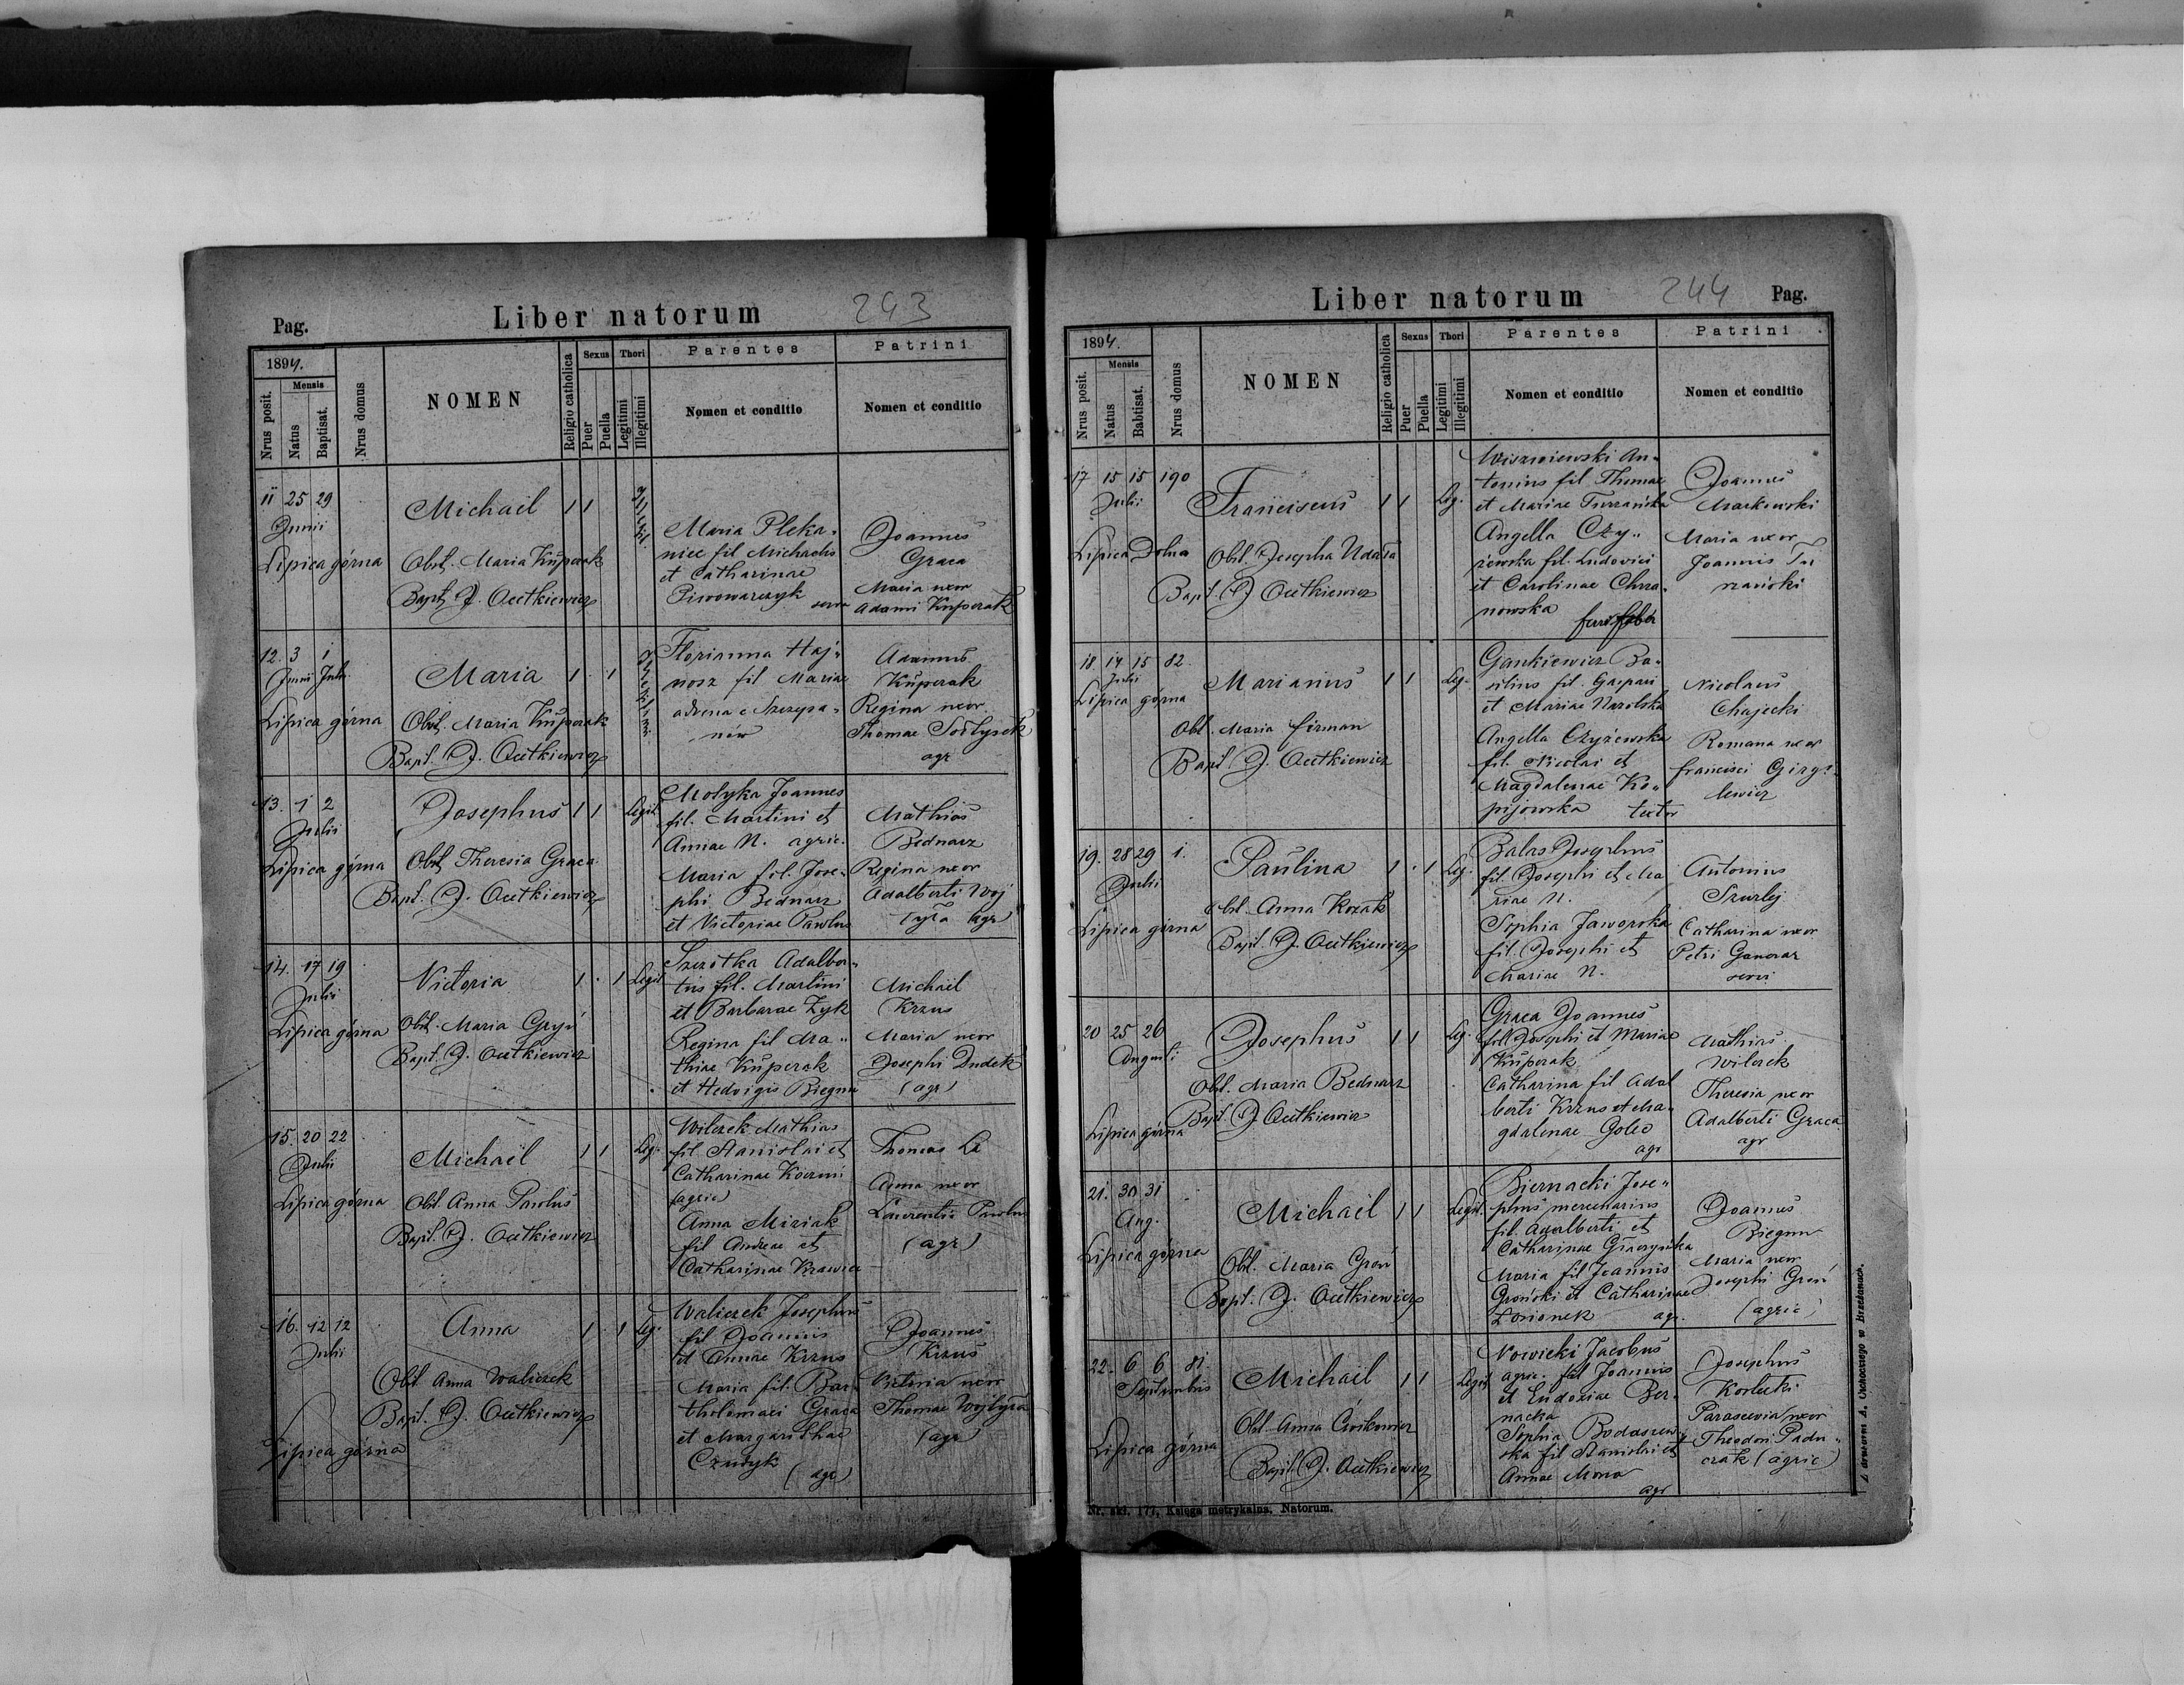 Pag.
Liber natorum
243
1894.
Mensis
Nrus posit.
Natus
Baptisat.
Nrus domus
NOMEN
Religio catholica
Sexus
Puer
Puella
Thori
Legitimi
Illegitimi
Parentes
Nomen et conditio
Patrini
Nomen et conditio
11 25 29
Junii
Lipica górna
Michael 1 1
Obst. Maria Kuperak
Bapt. J.
Maria Pleka-
niec fil Michaelis
et Catharinae
Piwowarczyk
serva
Joannes
Graca
Maria uxor
Adami Kuperak
12. 3 1
Junii Julii
Lipica górna
Maria 1 1
Obst. Maria Kuperak
Bapt. J.
Florianna Haj-
nosz fil Mariae
advena e Szczepa-
nów
Adamus
Kuperak
Regina uxor
Thomae Sołtysek
agr
13. 1 2
Julii
Lipica górna
Josephus 1 1 Legit.
Obst Theresia Graca
Bapt. J.
Motyka Joannes
fil. Martini et
Annae N. agric.
Maria fil. Jose-
phi Bednarz
et Victoriae Pawlus
Mathias
Bednarz
Regina uxor
Adalberti Woj
tyła agr
14. 17 19
Julii
Lipica górna
Victoria 1 1 Legit
Obst. Maria Gryń
Bapt. J.
Szczotka Adalber-
tus fil. Martini
et Barbarae Zyk
Regina fil Ma-
thiae Kuperak
et Hedvigis Biegun
Michael
Krzus
Maria uxor
Josephi Dudek
(agr)
15. 20 22
Julii
Lipica górna
Michael 1 1 Leg.
Obst Anna Pawlus
Bapt. J.
Wilczek Mathias
fil Stanislai et
Catharinae
agric
Anna Miziak
fil Andreae et
Catharinae Krawiec
Thomas
Anna uxor
Laurentii Pawlus
(agr)
16. 12 12
Julii
Lipica górna
Anna 1 1 Leg.
Obst Anna Waliczek
Bapt. J.
Waliczek Josephus
fil Joannis
et Annae Krzus
Maria fil. Bar-
tholomaei Graca
et Margarithae
(agr)
Joannes
Krzus
Victoria uxor
Thomae Wojtyła
(agr)
Liber natorum
244
Pag.
1894.
Mensis
Nrus posit.
Natus
Babtisat.
Nrus domus
NOMEN
Religio catholica
Sexus
Puer
Puella
Thori
Legitimi
Illegitimi
Parentes
Nomen et conditio
Patrini
Nomen et conditio
17 15 15 190
Julii
Lipica Dolna
Franciscus 1 1 Leg.
Obst. Josepha
Bapt. J.
Wiszniewski An-
tonius fil Thomae
et Mariae Turzańska
Angella Czy-
żewska fil. Ludovici
et Carolinae Chrza-
nowska
ferri faber
Joannes
Markowski
Maria uxor
Joannis Tu
rzański
18. 14 15 82.
Julii
Lipica górna
Marianus 1 1 Leg.
Obst. Maria Firman
Bapt. J.
Gankiewicz Ba-
silius fil. Gaspari
et Mariae Narolska
Angella Czyżewska
fil. Nicolai et
Magdalenae Ko-
pijowska tector
Nicolaus
Chajecki
Romana uxor
Francisci
lewicz
19. 28 29 1.
Julii
Lipica górna
Paulina 1 1 Leg.
Obst. Anna Kozak
Bapt. J.
Balas Josephus
fil. Josephi et Ma
riae N.
Sophia Jaworska
fil. Josephi et
Mariae N.
Antonius
Szurlej
Catharina uxor
Petri Gancarz
servi
20 25 26
Augusti
Lipica górna
Josephus 1 1 Leg.
Obst. Maria Bednarz
Bapt. J.
Graca Joannes
fil Josephi et Mariae
Kuperak
Catharina fil Adal
berti Krzus et Ma-
gdalenae Golec
agr
Mathias
Wilczek
Theresia uxor
Adalberti Graca
agr
21. 30 31
Aug.
Lipica górna
Michael 1 1 Legit.
Obst. Maria Groń
Bapt. J.
Biernacki Jose-
phus mercenarius
fil. Adalberti et
Catharinae
Maria fil Joannis
Groński et Catharinae
agr.
Joannes
Biegun
Maria uxor
Josephi Groń
(agric)
22. 6 6 81.
Septembris
Lipica górna
Michael 1 1 Legit
Obst. Anna
Bapt. J.
Nowicki Jacobus
agric. fil Joannis
et Eudoxiae Ber-
nacka
Sophia Bodaszew-
ska fil Stanislai et
Annae
agr
Josephus
Korlecki
Parascevia uxor
Theodori Padu-
czak (agric)
Nr. skł. 177, Księga metrykalna. Natorum.